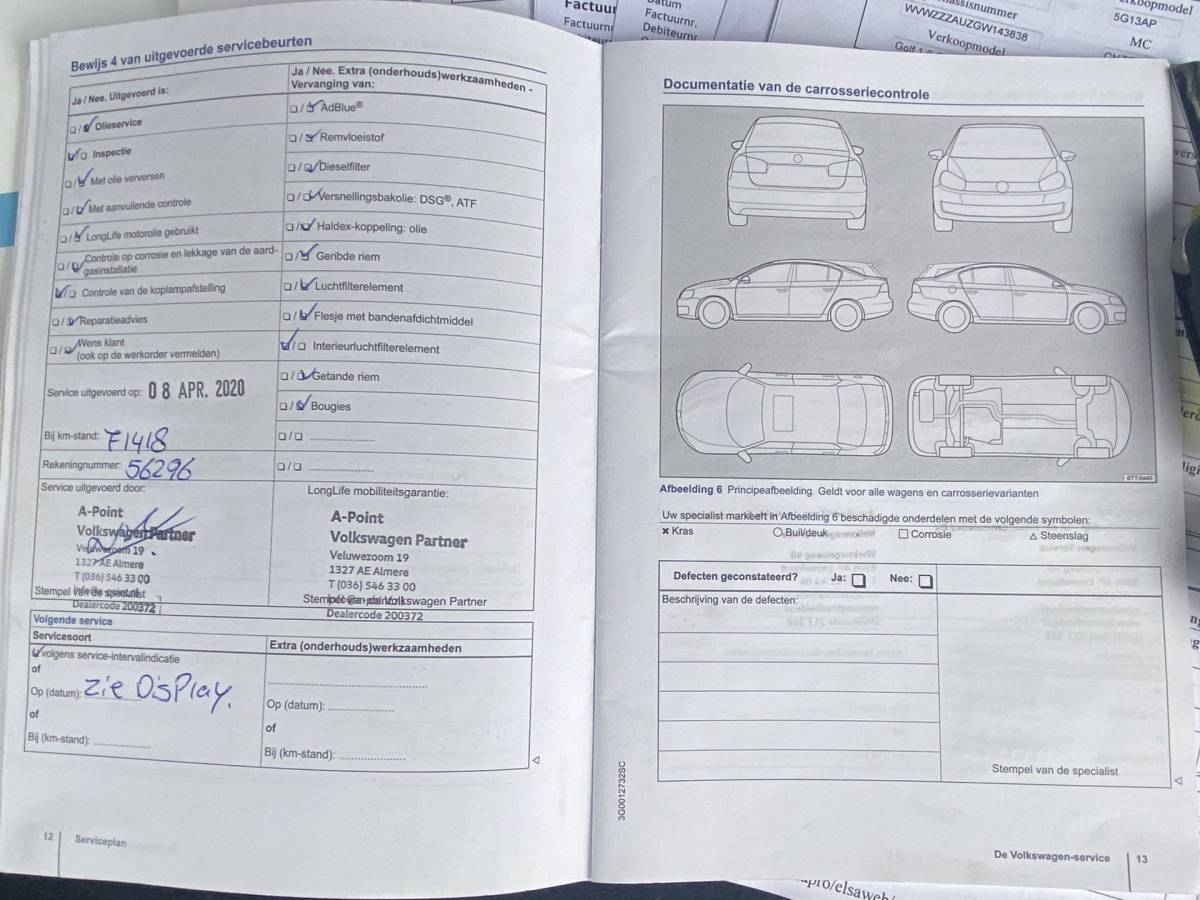 Factuur
Factuurnr
Datum
Factuurnr.
Debiteurnr
WVWZZZAUZGW143838
Verkoopmodel
Golf
5G13AP
MC
Bewijs 4 van uitgevoerde servicebeurten
Ja / Nee. Uitgevoerd is:
❑/❑ Olieservice
❑/❑ Inspectie
❑/❑ Met olie verversen
❑/❑ Met aanvullende controle
❑/❑ LongLife motorolie gebruikt
❑/❑ Controle op corrosie en lekkage van de aard-
gasinstallatie
❑/❑ Controle van de koplampafstelling
❑/❑ Reparatieadvies
❑/❑ Wens klant
(ook op de werkorder vermelden)
Service uitgevoerd op: 08 APR. 2020
Bij km-stand: 71418
Rekeningnummer: 56296
Service uitgevoerd door:
A-Point
Volkswagen Partner
Veluwezoom 19
1327 AE Almere
T (036) 546 33 00
Stempel van de specialist
Dealercode 200372
Ja / Nee. Extra (onderhouds)werkzaamheden -
Vervanging van:
❑/❑ AdBlue®
❑/❑ Remvloeistof
❑/❑ Dieselfilter
❑/❑ Versnellingsbakolie: DSG®, ATF
❑/❑ Haldex-koppeling: olie
❑/❑ Geribde riem
❑/❑ Luchtfilterelement
❑/❑ Flesje met bandenafdichtmiddel
❑/❑ Interieurluchtfilterelement
❑/❑ Getande riem
❑/❑ Bougies
❑/❑
❑/❑
LongLife mobiliteitsgarantie:
A-Point
Volkswagen Partner
Veluwezoom 19
1327 AE Almere
T (036) 546 33 00
Stempel van de Volkswagen Partner
Dealercode 200372
Volgende service
Servicesoort
volgens service-intervalindicatie
of
Op (datum): zie DisPlay.
of
Bij (km-stand):
Extra (onderhouds)werkzaamheden
Op (datum):
of
Bij (km-stand):
12 Serviceplan
Documentatie van de carrosseriecontrole
B7T-0449
Afbeelding 6 Principeafbeelding. Geldt voor alle wagens en carrosserievarianten
Uw specialist markeert in Afbeelding 6 beschadigde onderdelen met de volgende symbolen:
× Kras ○ Buil/deuk □ Corrosie △ Steenslag
Defecten geconstateerd? Ja: ❑ Nee: ❑
Beschrijving van de defecten:
Stempel van de specialist
3G0012732SC
De Volkswagen-service 13